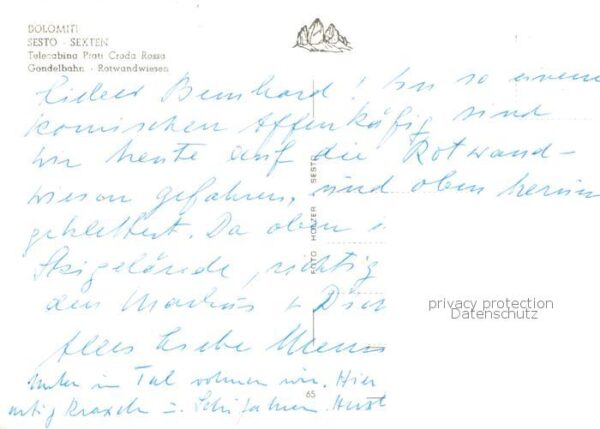 DOLOMITI
SESTO - SEXTEN
Telecabina Prati Croda Rossa
Gondelbahn - Rotwandwiesen
Lieber Bernhard! In so einem
komischen Affenkäfig sind
wir heute auf die Rotwand-
wiesen gefahren, und oben herum
geklettert. Da oben
Skigelände, richtig
den Markus + Dich
Alles Liebe
Unten im Tal wohnen wir. Hier
Schifahren.
FOTO HOLZER SESTO
65
privacy protection
Datenschutz